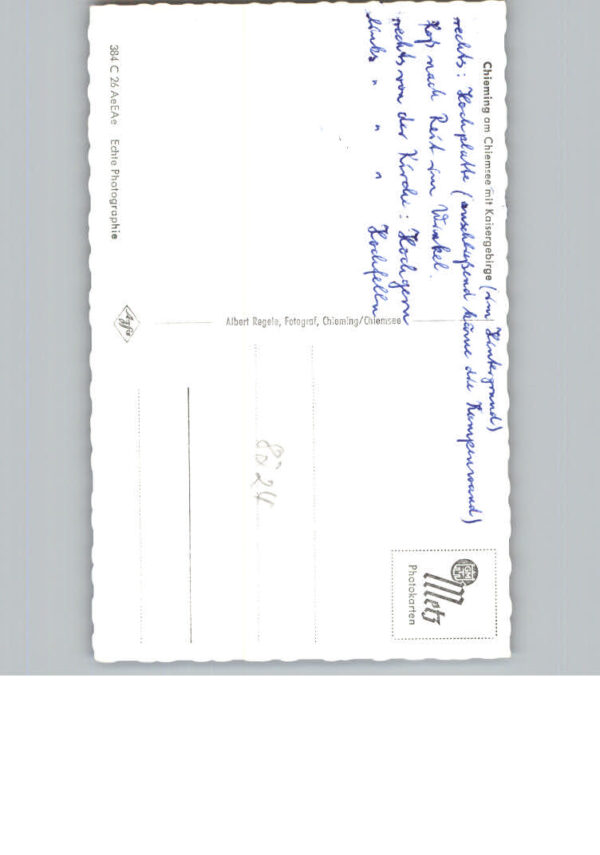 Chieming am Chiemsee mit Kaisergebirge (im Hintergrund)
rechts: Hochplatte (anschließend käme die Kampenwand)
nach Reit im Winkel.
rechts von der Kirche: Hochgern
links " " " Hochfelln
Albert Regele, Fotograf, Chieming/Chiemsee
384 C 26 AeEAe Echte Photographie
Agfa
Metz
Photokarten
8024